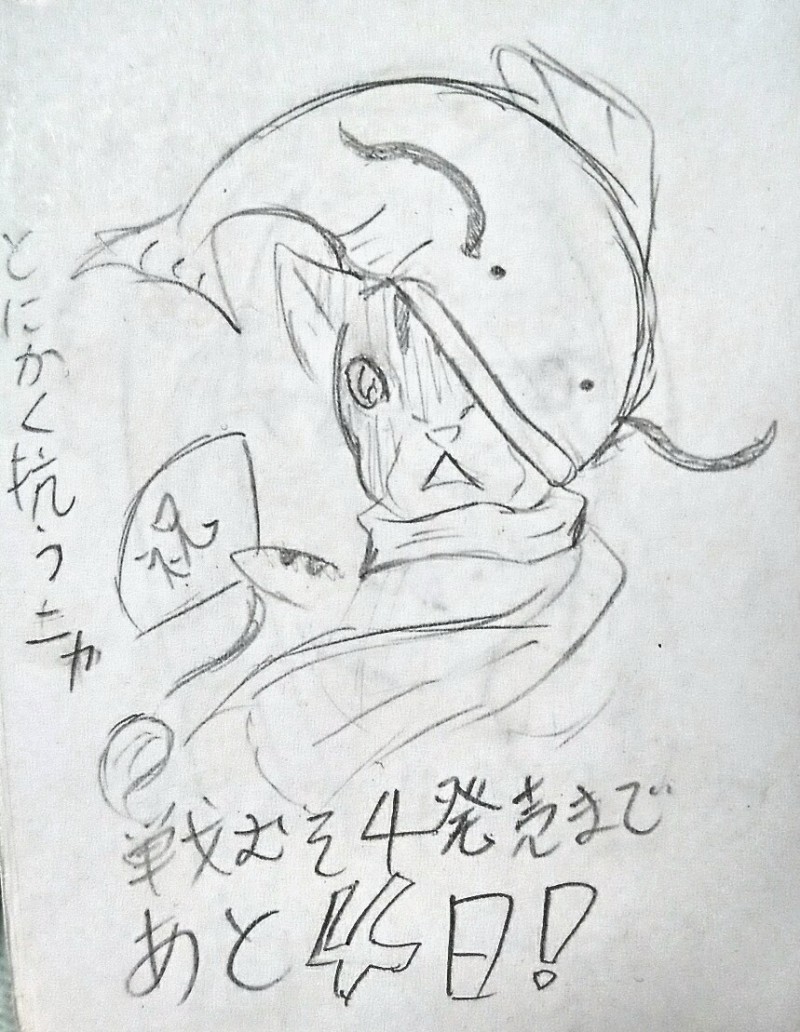 とにかく抗うニカ
祝
戦むそ4発売まで
あと4日!